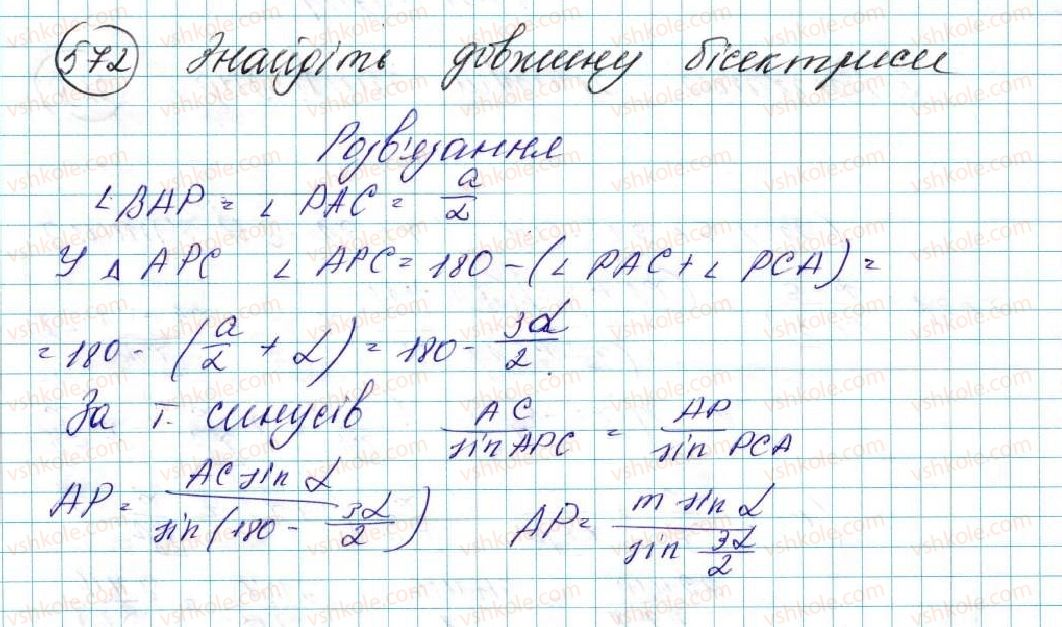 572 Знайдіть довжину бісектриси
Розв'язання
∠BAP = ∠PAC = a/2
У △APC ∠APC = 180 - (∠PAC + ∠PCA) =
= 180 - (a/2 + α) = 180 - 3α/2.
За т. синусів AC/sin APC = AP/sin PCA
AP = AC sin α/sin(180 - 3α/2) AP = m sin α/sin 3α/2